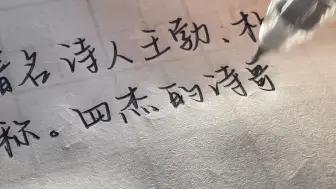 名诗人王勃、
称。四杰的诗哥